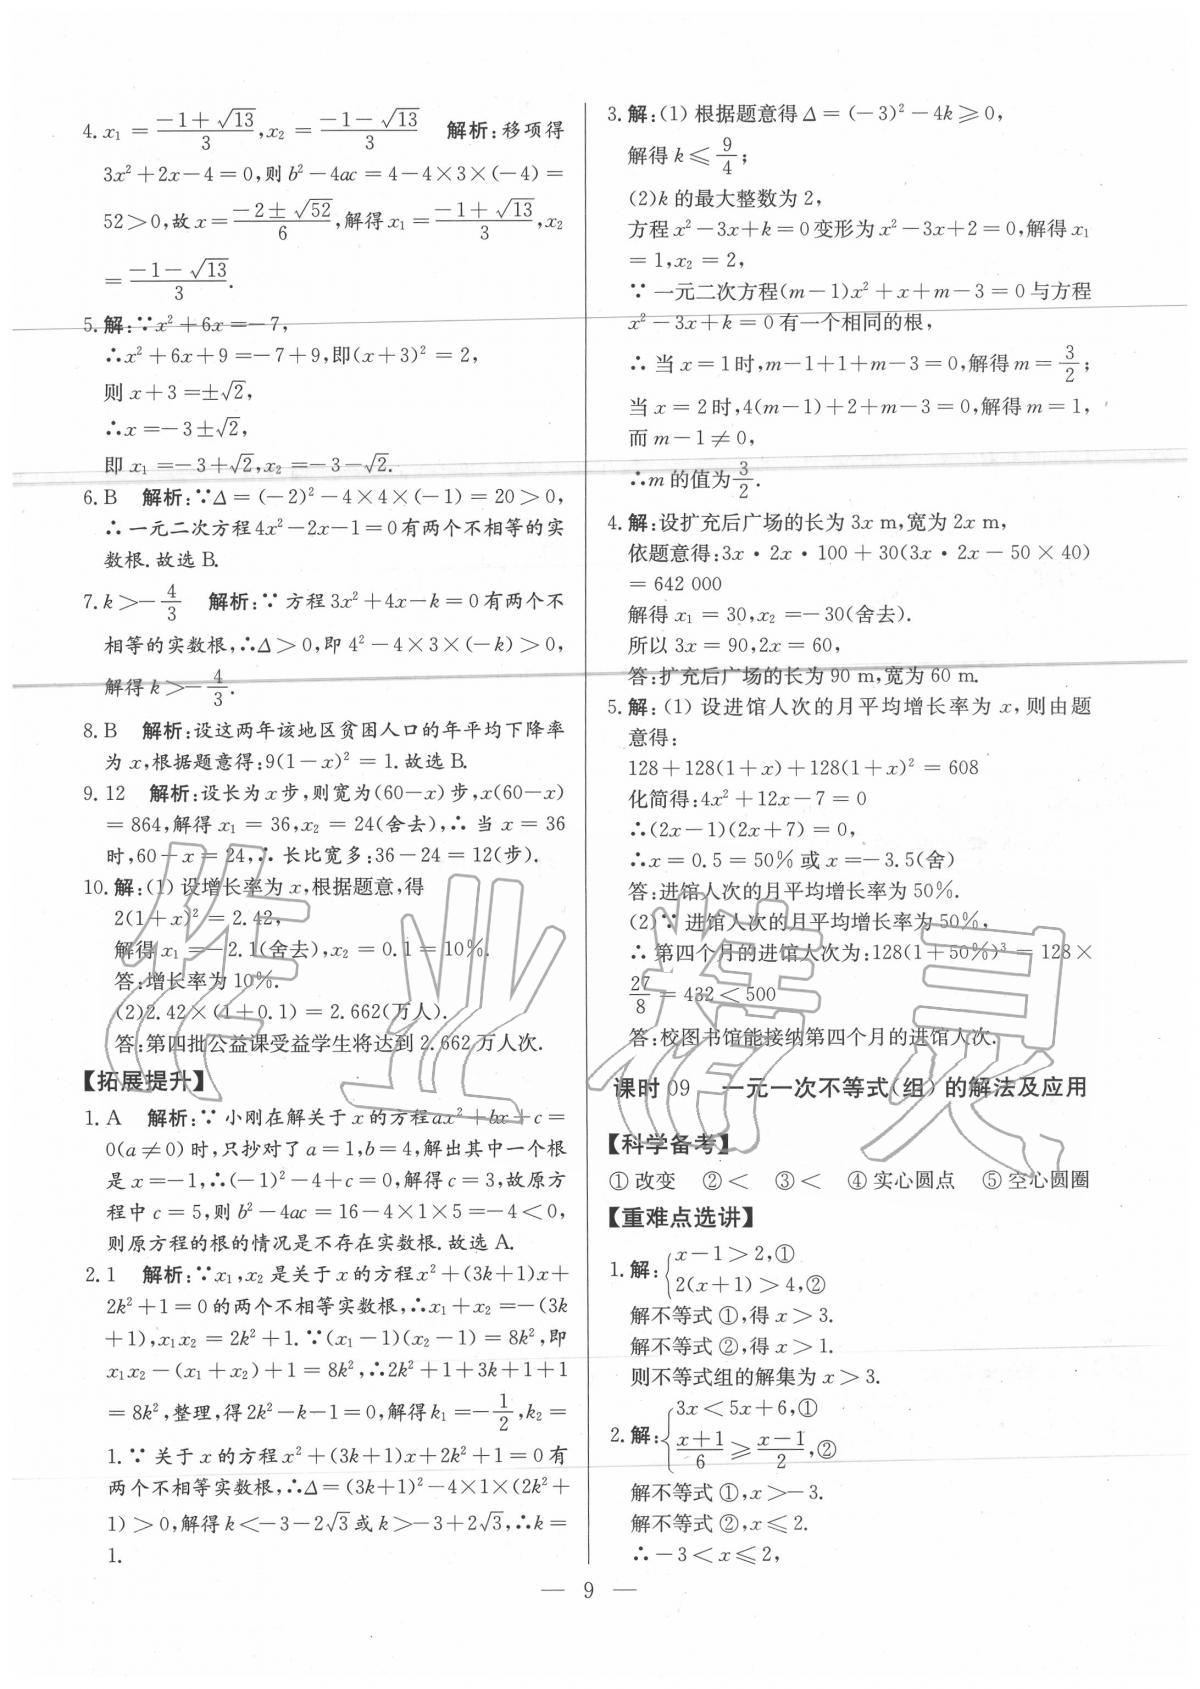 4. x₁ = (−1+√13)/3, x₂ = (−1−√13)/3 解析:移项得
3x²+2x−4=0,则 b²−4ac=4−4×3×(−4)=
52>0,故 x=(−2±√52)/6,解得 x₁=(−1+√13)/3,x₂
=(−1−√13)/3.
5. 解:∵x²+6x=−7,
∴x²+6x+9=−7+9,即(x+3)²=2,
则 x+3=±√2,
∴x=−3±√2,
即 x₁=−3+√2,x₂=−3−√2.
6. B 解析:∵Δ=(−2)²−4×4×(−1)=20>0,
∴一元二次方程4x²−2x−1=0有两个不相等的实
数根.故选 B.
7. k>−4/3 解析:∵方程3x²+4x−k=0有两个不
相等的实数根,∴Δ>0,即 4²−4×3×(−k)>0,
解得 k>−4/3.
8. B 解析:设这两年该地区贫困人口的年平均下降率
为 x,根据题意得:9(1−x)²=1.故选 B.
9. 12 解析:设长为 x 步,则宽为(60−x)步,x(60−x)
=864,解得 x₁=36,x₂=24(舍去),∴当 x=36
时,60−x=24,∴长比宽多:36−24=12(步).
10. 解:(1)设增长率为 x,根据题意,得
2(1+x)²=2.42,
解得 x₁=−2.1(舍去),x₂=0.1=10%.
答:增长率为 10%.
(2)2.42×(1+0.1)=2.662(万人).
答:第四批公益课受益学生将达到 2.662 万人次.
【拓展提升】
1. A 解析:∵小刚在解关于 x 的方程 ax²+bx+c=
0(a≠0)时,只抄对了 a=1,b=4,解出其中一个根
是 x=−1,∴(−1)²−4+c=0,解得 c=3,故原方
程中 c=5,则 b²−4ac=16−4×1×5=−4<0,
则原方程的根的情况是不存在实数根.故选 A.
2. 1 解析:∵x₁,x₂ 是关于 x 的方程 x²+(3k+1)x+
2k²+1=0的两个不相等实数根,∴x₁+x₂=−(3k
+1),x₁x₂=2k²+1.∵(x₁−1)(x₂−1)=8k²,即
x₁x₂−(x₁+x₂)+1=8k²,∴2k²+1+3k+1+1
=8k²,整理,得2k²−k−1=0,解得k₁=−1/2,k₂=
1.∵关于 x 的方程 x²+(3k+1)x+2k²+1=0有
两个不相等实数根,∴Δ=(3k+1)²−4×1×(2k²+
1)>0,解得 k<−3−2√3或 k>−3+2√3,∴k=
1.
3. 解:(1)根据题意得 Δ=(−3)²−4k≥0,
解得 k≤9/4;
(2)k 的最大整数为 2,
方程 x²−3x+k=0变形为 x²−3x+2=0,解得 x₁
=1,x₂=2,
∵一元二次方程(m−1)x²+x+m−3=0与方程
x²−3x+k=0有一个相同的根,
∴当 x=1时,m−1+1+m−3=0,解得 m=3/2;
当 x=2时,4(m−1)+2+m−3=0,解得 m=1,
而 m−1≠0,
∴m 的值为3/2.
4. 解:设扩充后广场的长为 3x m,宽为 2x m,
依题意得:3x·2x·100+30(3x·2x−50×40)
=642 000
解得 x₁=30,x₂=−30(舍去).
所以 3x=90,2x=60,
答:扩充后广场的长为 90 m,宽为 60 m.
5. 解:(1)设进馆人次的月平均增长率为 x,则由题
意得:
128+128(1+x)+128(1+x)²=608
化简得:4x²+12x−7=0
∴(2x−1)(2x+7)=0,
∴x=0.5=50%或 x=−3.5(舍)
答:进馆人次的月平均增长率为 50%.
(2)∵进馆人次的月平均增长率为 50%,
∴第四个月的进馆人次为:128(1+50%)³=128×
27/8=432<500
答:校图书馆能接纳第四个月的进馆人次.
课时 09 一元一次不等式(组)的解法及应用
【科学备考】
①改变 ②< ③< ④实心圆点 ⑤空心圆圈
【重难点选讲】
1. 解:{x−1>2,①
2(x+1)>4,②
解不等式①,得 x>3.
解不等式②,得 x>1.
则不等式组的解集为 x>3.
2. 解:{3x<5x+6,①
(x+1)/6≥(x−1)/2,②
解不等式①,x>−3.
解不等式②,x≤2.
∴−3<x≤2,
— 9 —
作业精灵